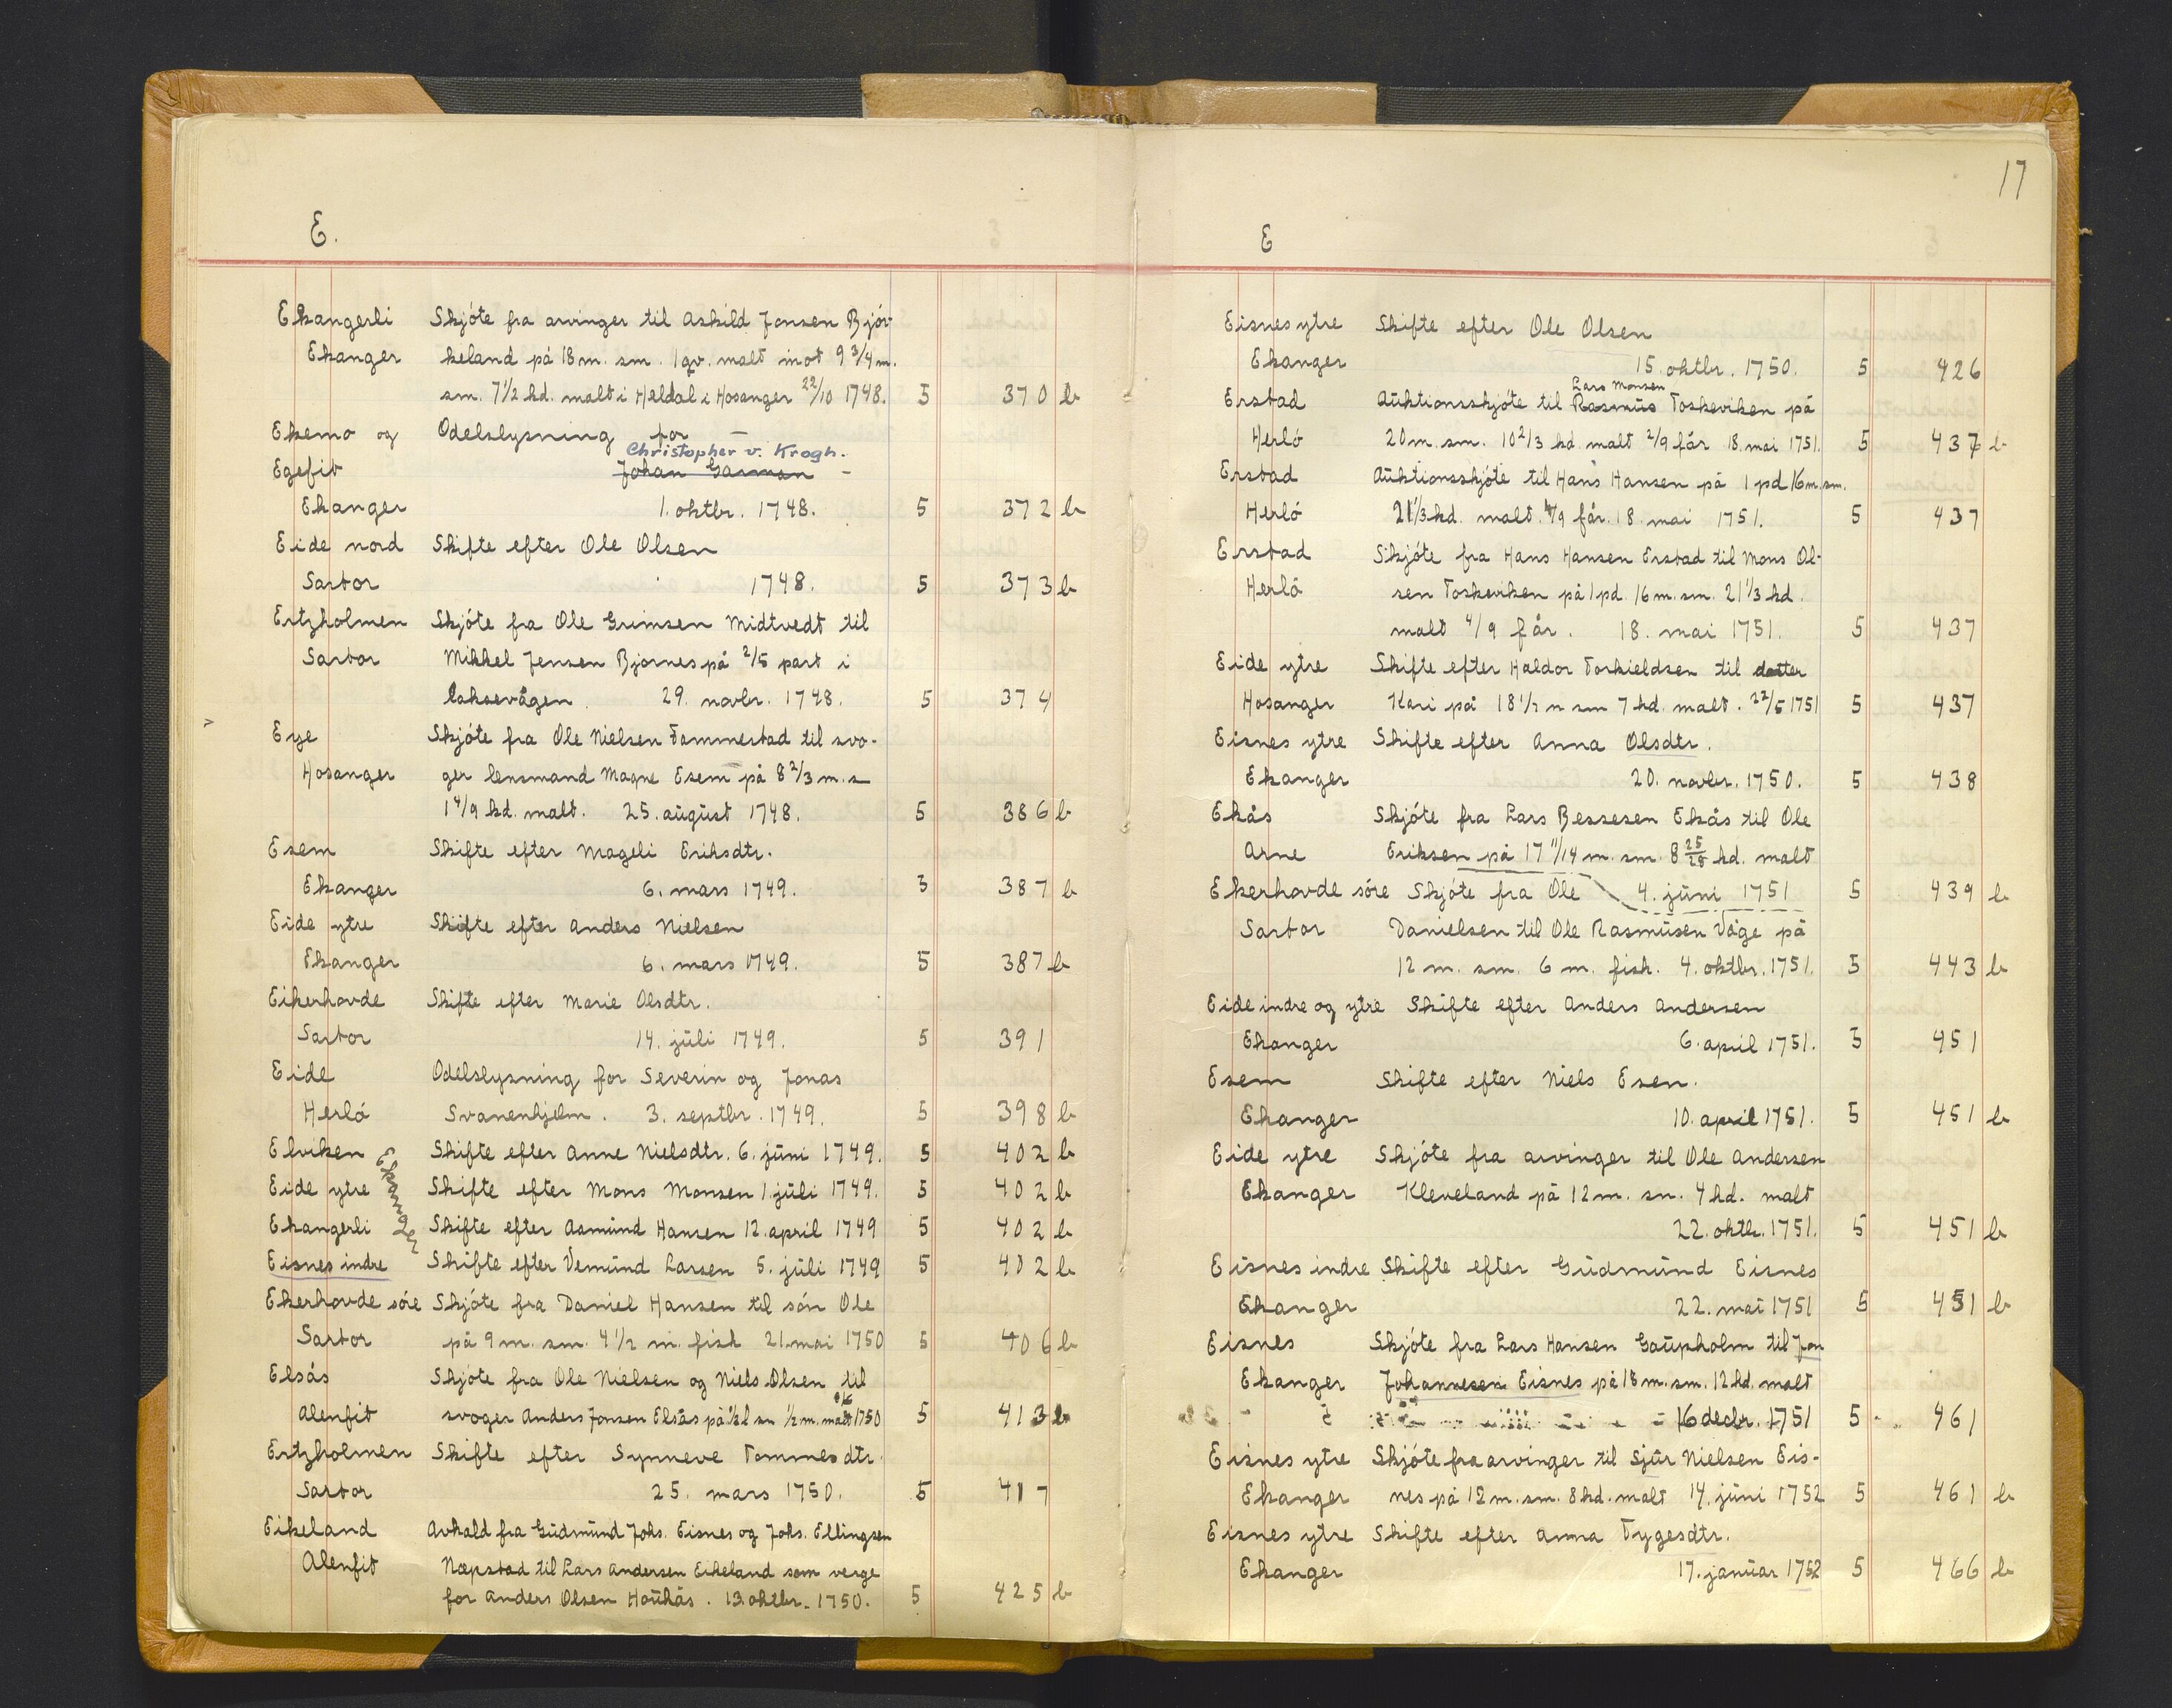 E.
Ekangerli Skjöte fra arvinger til Askild Jonsen Björ-
Ekanger keland på 18 m. sm. 1 qv. malt mot 9 3/4 m.
sm. 7 1/2 kd. malt i Heldal i Hosanger 22/10 1748. 5 370 b
Ekemo og Odelslysning for —
Christopher v. Krogh.
Egefit Johan Garman -
Ekanger 1. oktbr. 1748. 5 372 b
Eide nord Skifte efter Ole Olsen
Sartor 1748. 5 373 b
Ertzholmen Skjöte fra Ole Grimsen Midtvedt til
Sartor Mikkel Jensen Bjornes på 2/5 part i
laksevågen. 29. novbr. 1748. 5 374
Eye Skjöte fra Ole Nielsen Tammestad til svo-
Hosanger ger lensmand Magne Esem på 8 2/3 m. s
1 4/9 kd. malt. 25. august 1748. 5 386 b
Esem Skifte efter Mageli Eriksdtr.
Ekanger 6. mars 1749. 5 387 b
Eide ytre Skifte efter Anders Nielsen
Ekanger 6. mars 1749. 5 387 b
Eikerhovde Skifte efter Marie Olsdtr.
Sartor 14. juli 1749. 5 391
Eide Odelslysning for Severin og Jonas
Herlö Svanenhjelm. 3. septbr. 1749. 5 398 b
Elviken Skifte efter Anne Nielsdtr. 6. juni 1749. 5 402 b
Ekanger
Eide ytre Skifte efter Mons Monsen 1. juli 1749. 5 402 b
Ekangerli Skifte efter Asmund Hansen 12. april 1749 5 402 b
Eisnes indre Skifte efter Vemund Larsen 5. juli 1749 5 402 b
Ekerhovde söre Skjöte fra Daniel Hansen til sön Ole
Sartor på 9 m. sm. 4 1/2 m. fisk 21. mai 1750 5 406 b
Elsås Skjöte fra Ole Nielsen og Niels Olsen til
Alenfit svoger Anders Jonsen Elsås på 1/2 l sm 1/2 m. malt 1750 5 413 b
Ertzholmen Skifte efter Synneve Tommesdtr.
Sartor 25. mars 1750. 5 417
Eikeland Avkald fra Gudmund Johs. Eisnes og Johs. Ellingsen
Alenfit Næpstad til Lars Andersen Eikeland som verge
for Anders Olsen Haukås. 13. oktbr. 1750. 5 425 b
17
E
Eisnes ytre Skifte efter Ole Olsen
Ekanger 15. oktbr. 1750. 5 426
Lars Monsen
Erstad Auktionsskjöte til Rasmus Toskeviken på
Herlö 20 m. sm. 10 2/3 kd. malt 2/9 får 18. mai 1751. 5 437 b
Erstad Auktionsskjöte til Hans Hansen på 1 pd 16 m. sm.
Herlö 21 1/3 kd. malt 4/9 får. 18. mai 1751. 5 437
Erstad Skjöte fra Hans Hansen Erstad til Mons Ol-
Herlö sen Toskeviken på 1 pd. 16 m. sm. 21 1/3 kd.
malt 4/9 får. 18. mai 1751. 5 437
Eide ytre Skifte efter Haldor Torkieldsen til datter
Hosanger Kari på 18 1/2 m sm 7 kd. malt. 22/5 1751 5 437
Eisnes ytre Skifte efter Anna Olsdtr.
Ekanger 20. novbr. 1750. 5 438
Ekås Skjöte fra Lars Bessesen Ekås til Ole
Arne Eriksen på 17 11/14 m. sm. 8 25/28 kd. malt
Ekerhovde söre Skjöte fra Ole 4. juni 1751 5 439 b
Sartor Danielsen til Ole Rasmusen Våge på
12 m. sm. 6 m. fisk. 4. oktbr. 1751. 5 443 b
Eide indre og ytre Skifte efter Anders Andersen
Ekanger 6. april 1751. 5 451
Esem Skifte efter Niels Esen.
Ekanger 10. april 1751. 5 451 b
Eide ytre Skjöte fra arvinger til Ole Andersen
Ekanger Kleveland på 12 m. sm. 4 kd. malt
22. oktbr. 1751. 5 451 b
Eisnes indre Skifte efter Gudmund Eisnes
Ekanger 22. mai 1751 5 451 b
Eisnes Skjöte fra Lars Hansen Gaupholm til Jon
Ekanger Johannesen Eisnes på 18 m. sm. 12 kd. malt
16 decbr. 1751 5 461
Eisnes ytre Skjöte fra arvinger til Sjur Nielsen Eis-
Ekanger nes på 12 m. sm. 8 kd. malt 14. juni 1752 5 461 b
Eisnes ytre Skifte efter Anna Tygesdtr.
Ekanger 17. januar 1752 5 466 b